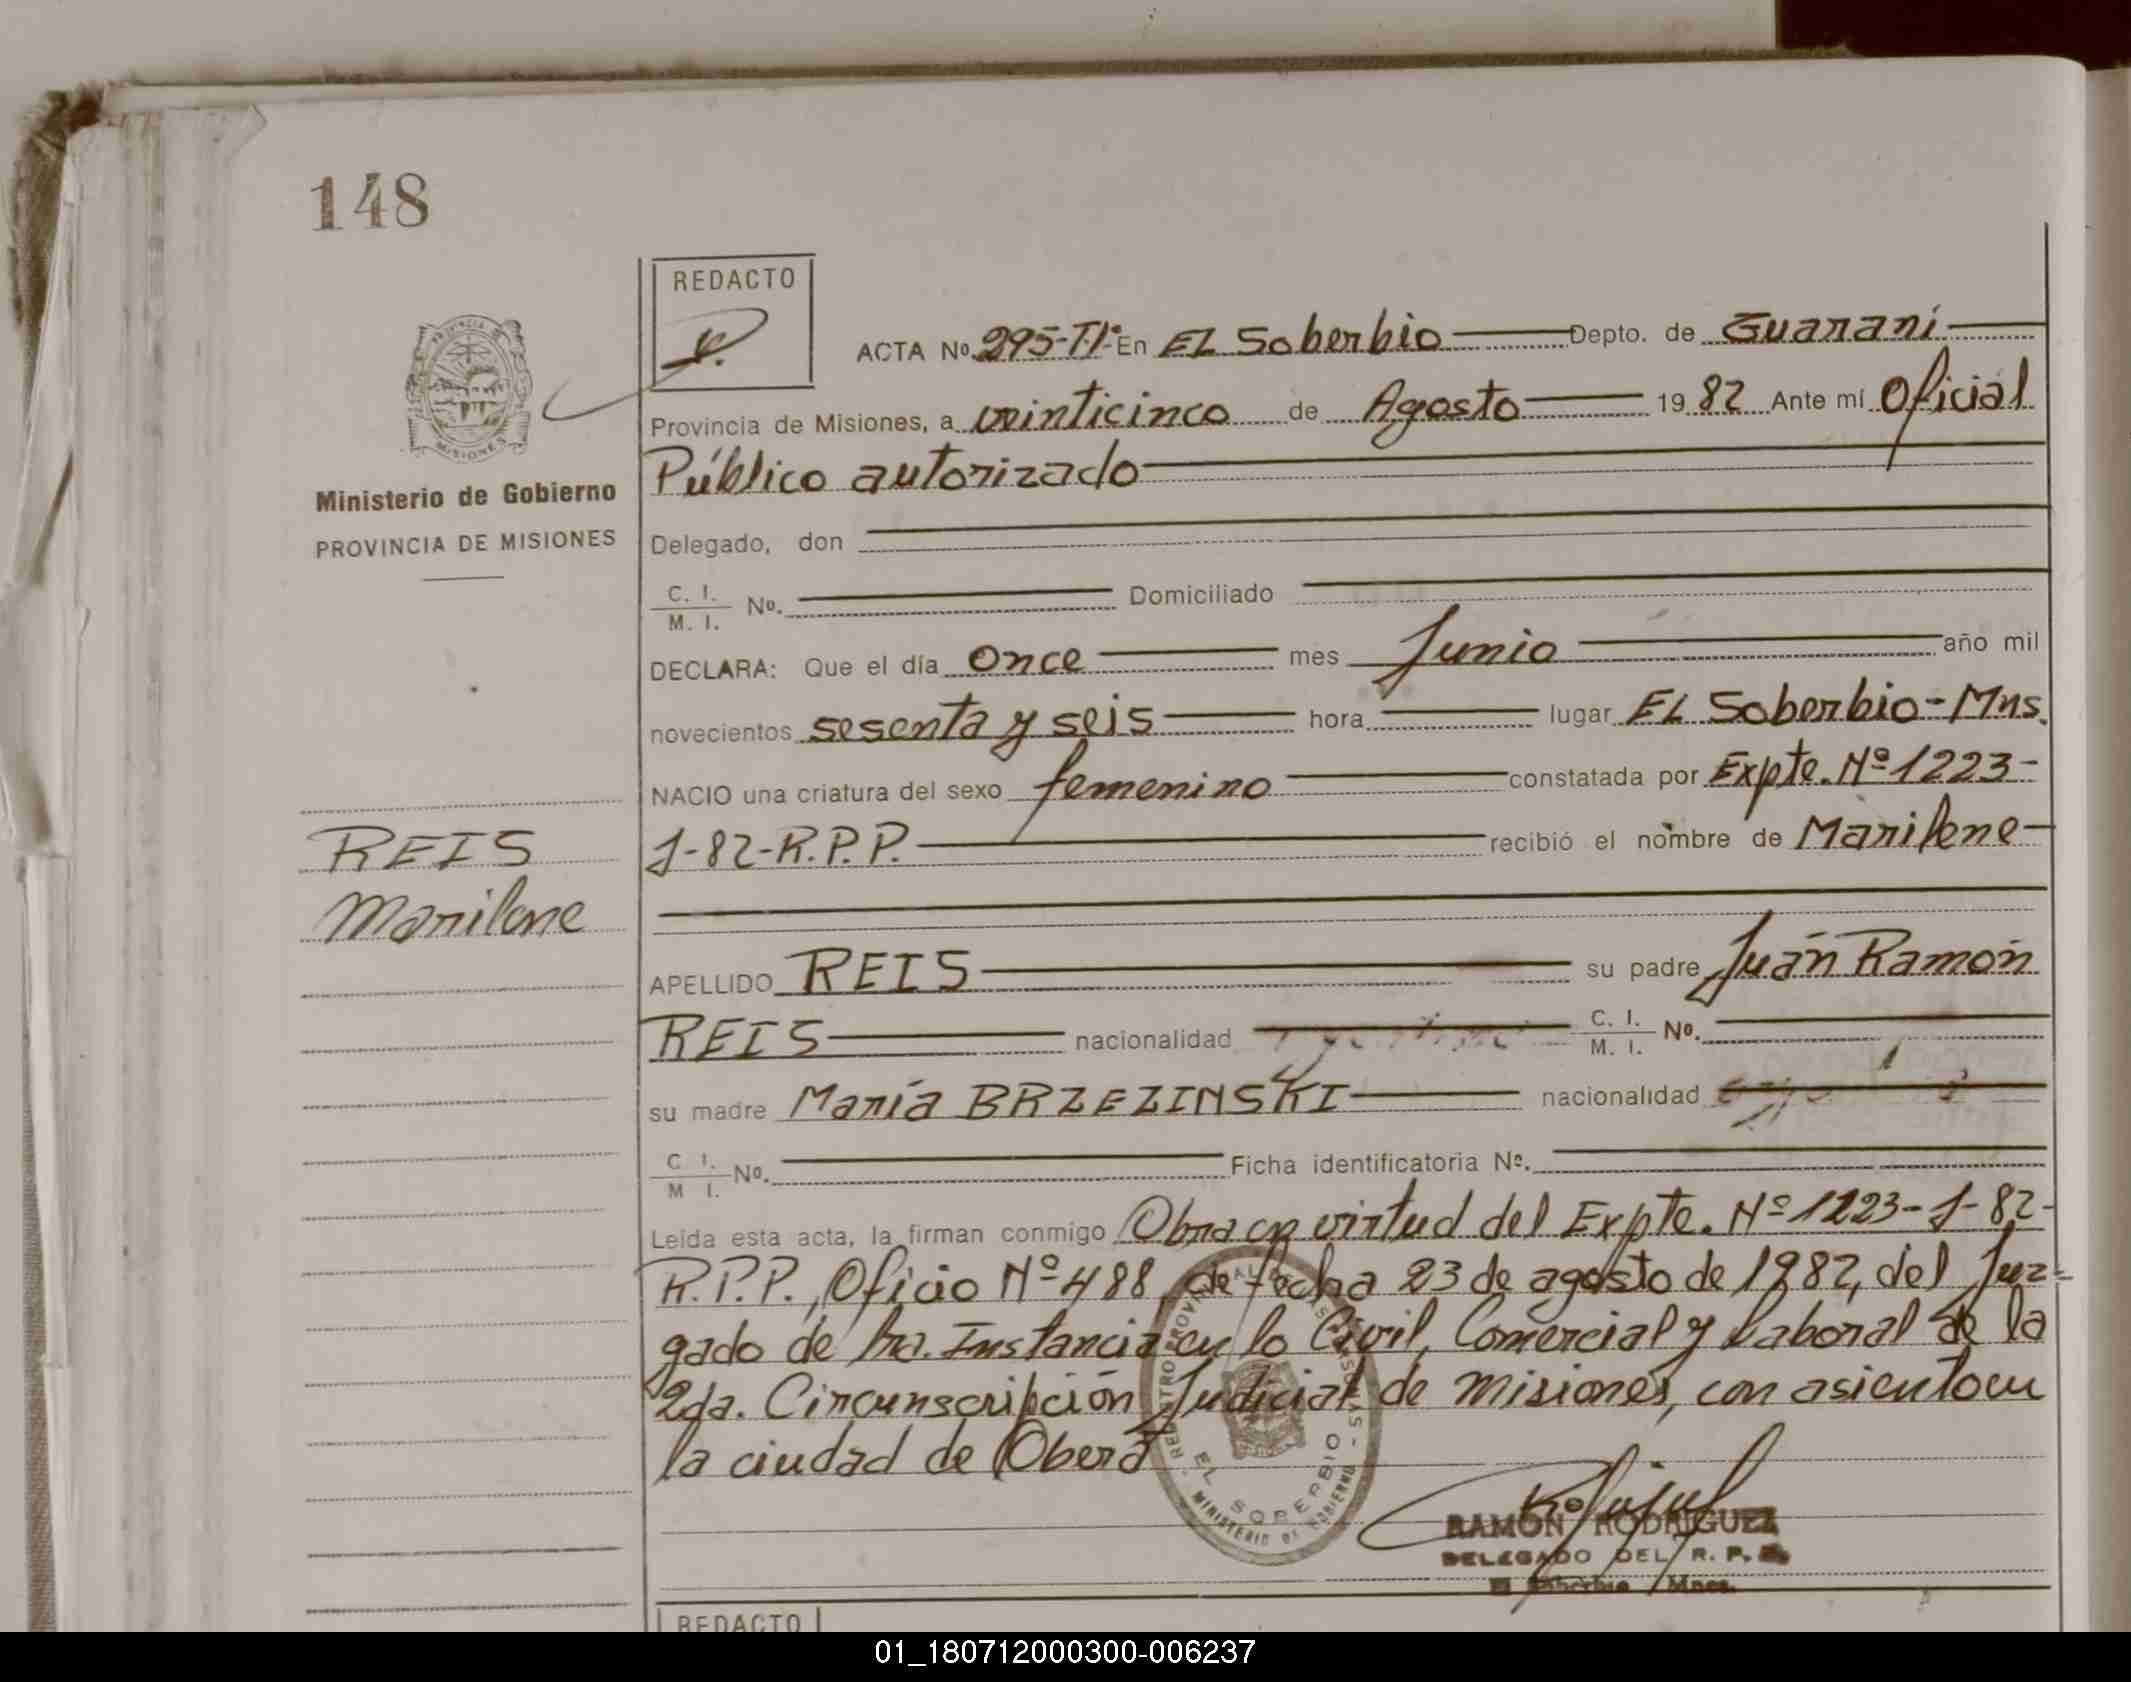 148
REDACTO
ACTA No. 295-Tº1º- En EL Soberbio Depto. de Guaraní
Provincia de Misiones, a veinticinco de Agosto 1982 Ante mí Oficial
Público autorizado
Delegado, don
C. I.
M. I. Nº. Domiciliado
DECLARA: Que el día once mes Junio año mil
novecientos sesenta y seis hora lugar EL Soberbio-Mns.
NACIO una criatura del sexo femenino constatada por Expte. Nº 1223-
J-82-R.P.P. recibió el nombre de Marilene
APELLIDO REIS su padre Juán Ramón
REIS nacionalidad C. I.
M. I. Nº.
su madre María BRZEZINSKI nacionalidad
C. I.
M. I. Nº. Ficha identificatoria Nº.
Leída esta acta, la firman conmigo Obra en virtud del Expte. Nº 1223-J-82-
R.P.P., Oficio Nº 488, de fecha 23 de agosto de 1982, del Juz-
gado de 1ra. Instancia en lo Civil, Comercial y Laboral de la
2da. Circunscripción Judicial de Misiones, con asiento en
la ciudad de Oberá
PROVINCIA DE
MISIONES
Ministerio de Gobierno
PROVINCIA DE MISIONES
REIS
Marilene
REGISTRO PROVINCIAL DE LAS PERSONAS
EL SOBERBIO
MINISTERIO DE GOBIERNO
RAMON RODRIGUEZ
DELEGADO DEL R. P. P.
El Soberbio Mnes.
REDACTO
01_180712000300-006237